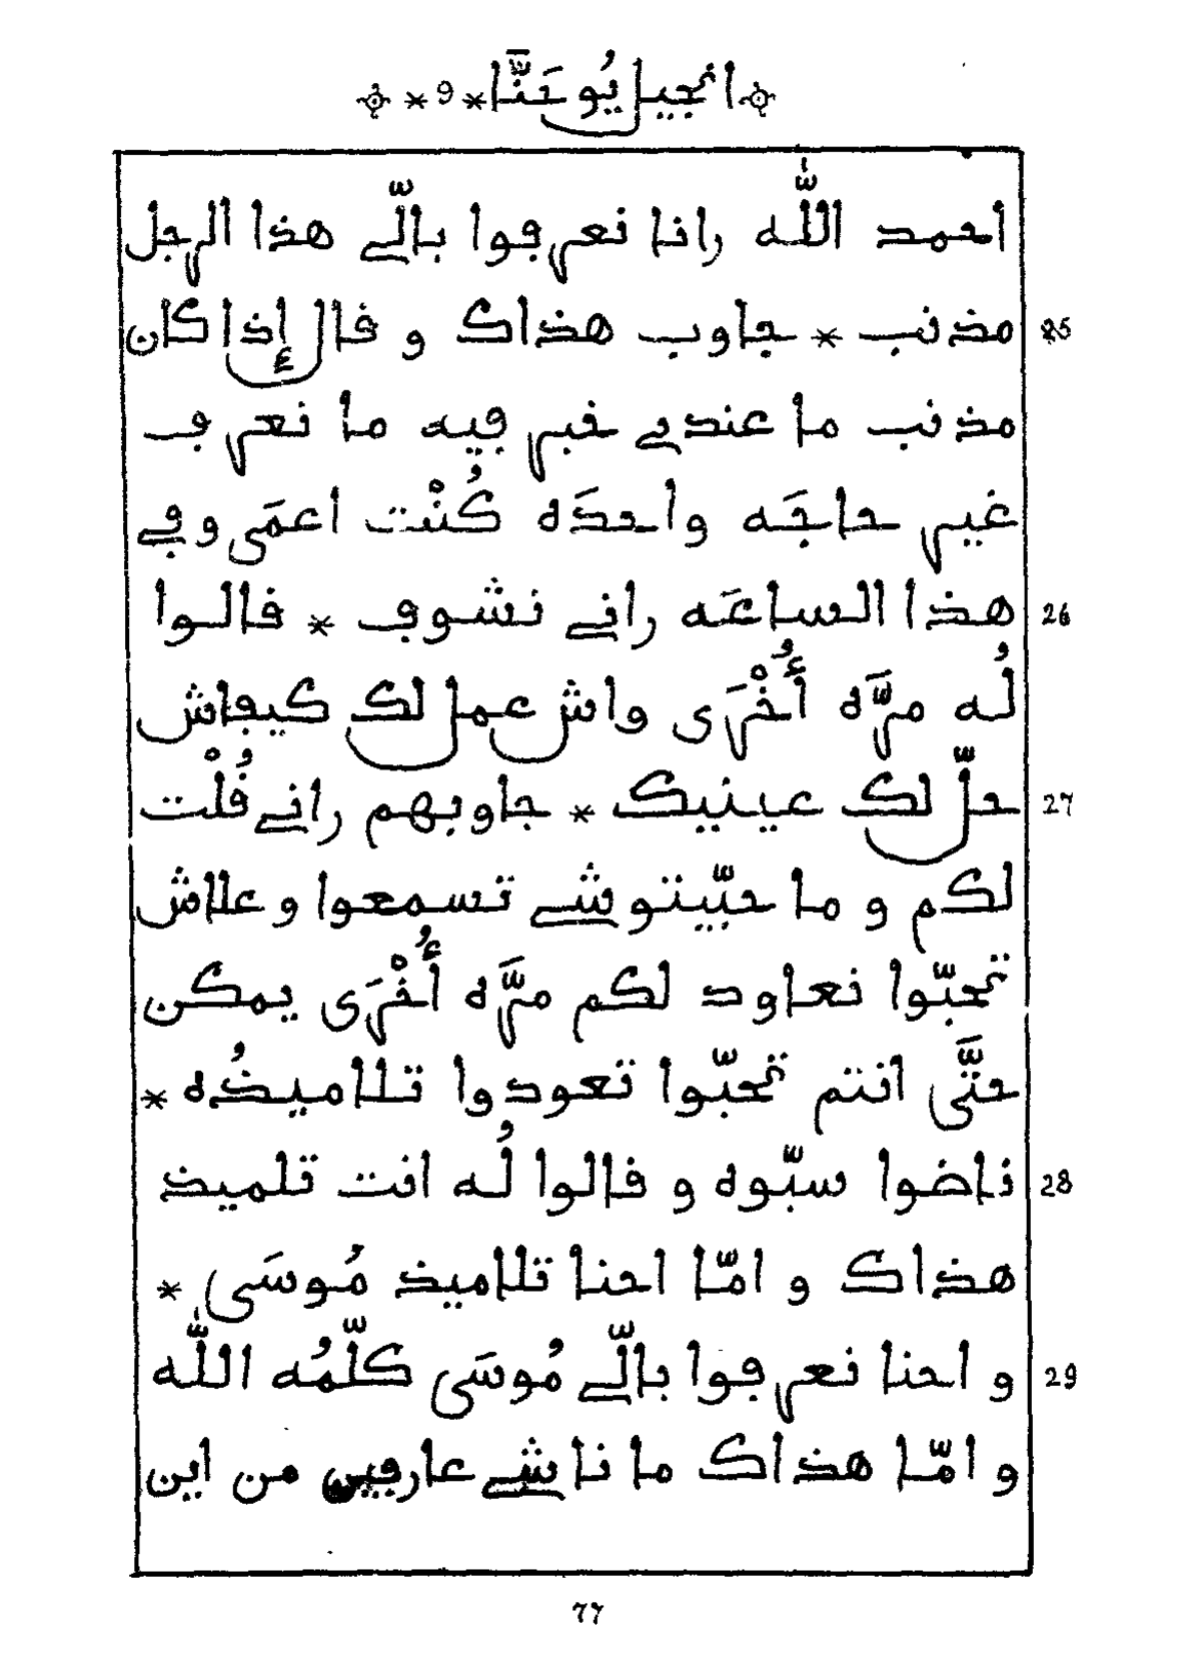 انجيل يُوحَنَّا * 9 *
احمد اللّٰه رانا نعرفوا بالّي هذا الرجل
مذنب * جاوب هذاك و قال إذا كان 25
مذنب ما عندي خبر فيه ما نعرف
غير حاجَه واحدَه كُنْت اعمَى و في
هذا الساعَه راني نشوف * قالوا 26
لُه مرَّه أُخْرَى واش عمل لك كيفاش
حلّ لك عينيك * جاوبهم راني قُلْت 27
لكم و ما حبّيتوشي تسمعوا و علاش
تحبّوا نعاود لكم مرَّه أُخْرَى يمكن
حتَّى انتم تحبّوا تعودوا تلاميذُه *
ناضوا سبّوه و قالوا لُه انت تلميذ 28
هذاك و امّا احنا تلاميذ مُوسَى *
و احنا نعرفوا بالّي مُوسَى كلّمُه اللّٰه 29
و امّا هذاك ما ناشي عارفين من اين
77